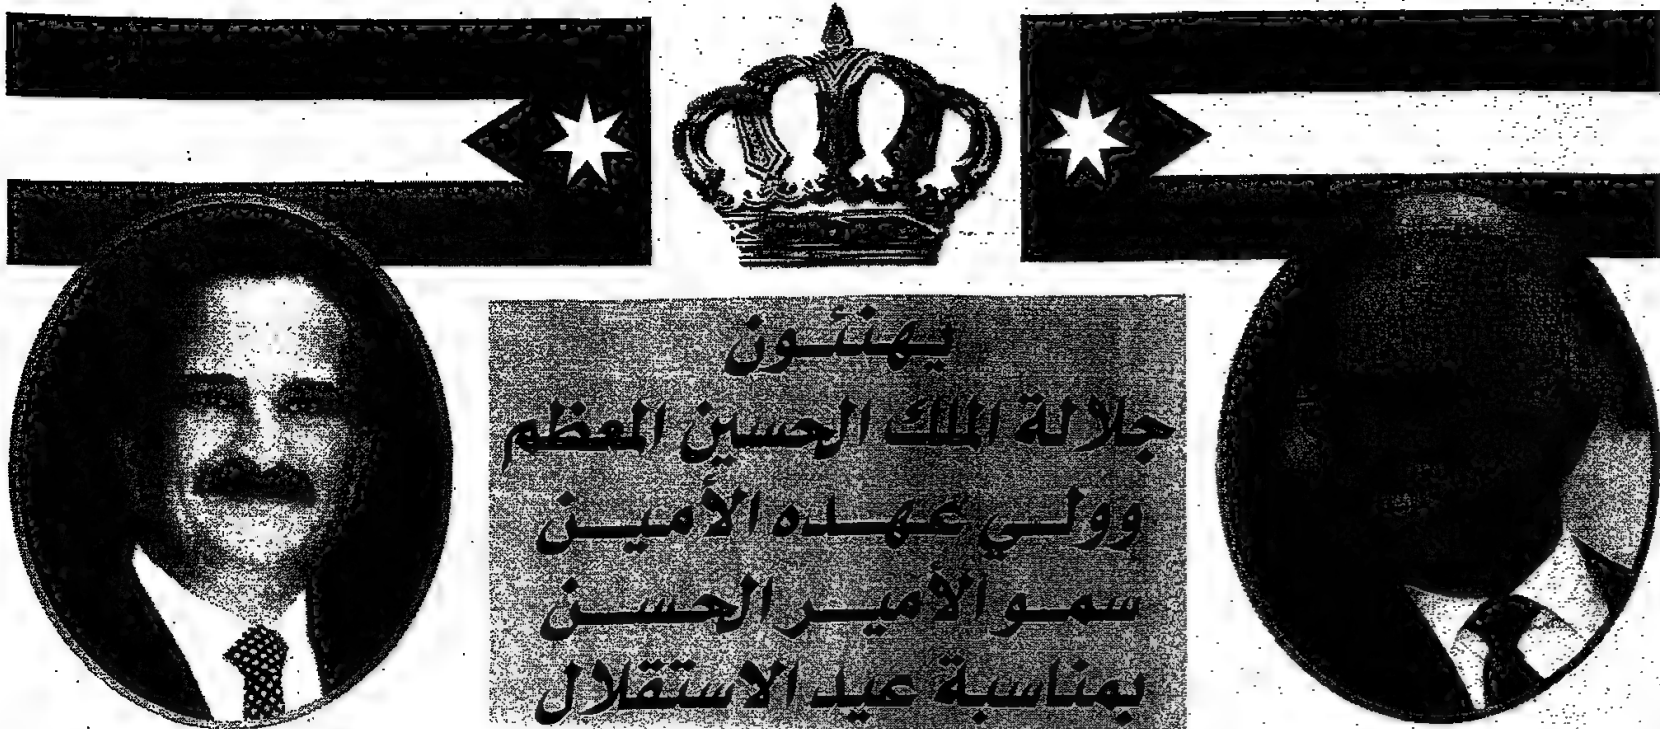 يهنئون
جلالة الملك الحسين المعظم
وولي عهده الأمين
سمو الأمير الحسن
بمناسبة عيد الاستقلال